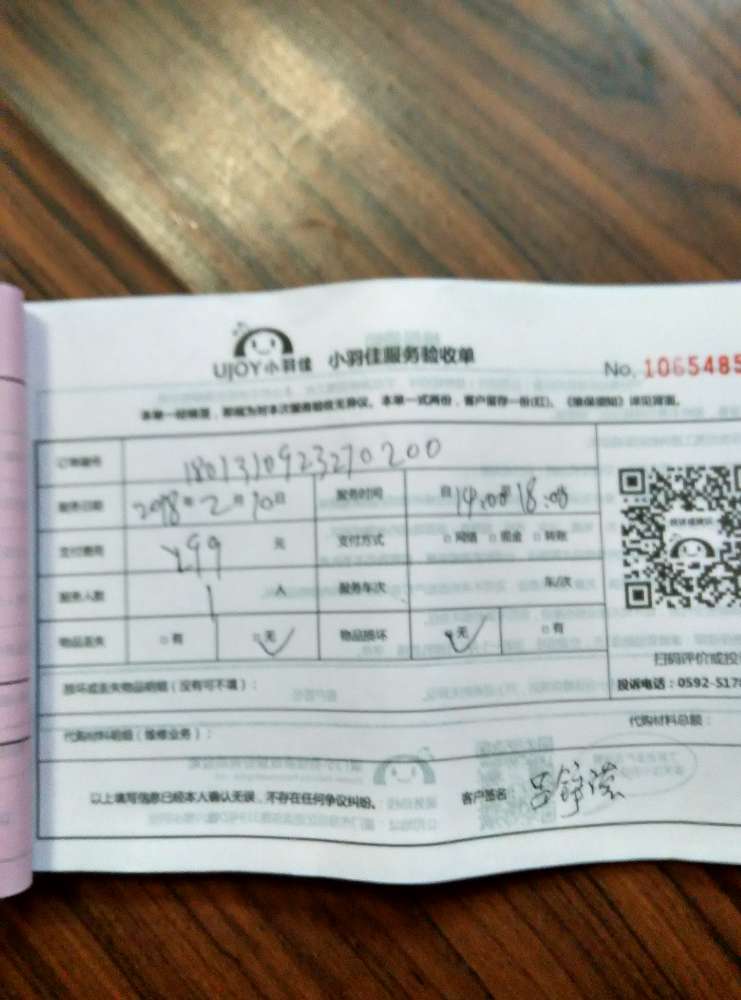 UJOY小羽佳 小羽佳服务验收单
No. 1065485
本单一经填写，即视为对本次服务验收无异议。本单一式两份，客户留存一份(红)。《维保细则》详见背面。
订单编号 1801310923270200
服务日期 2018年2月10日 服务时间 自14:00至18:00
支付费用 ¥199 元 支付方式 □网络 □现金 □转账
服务人数 1 人 服务车次 车/次
物品丢失 □有 □无 物品损坏 □无 □有
损坏或丢失物品明细（没有可不填）：
扫码评价或投
投诉电话：0592-517
代购材料明细（维修业务）： 代购材料总额：
以上填写信息已经本人确认无误，不存在任何争议纠纷。 客户签名：吕